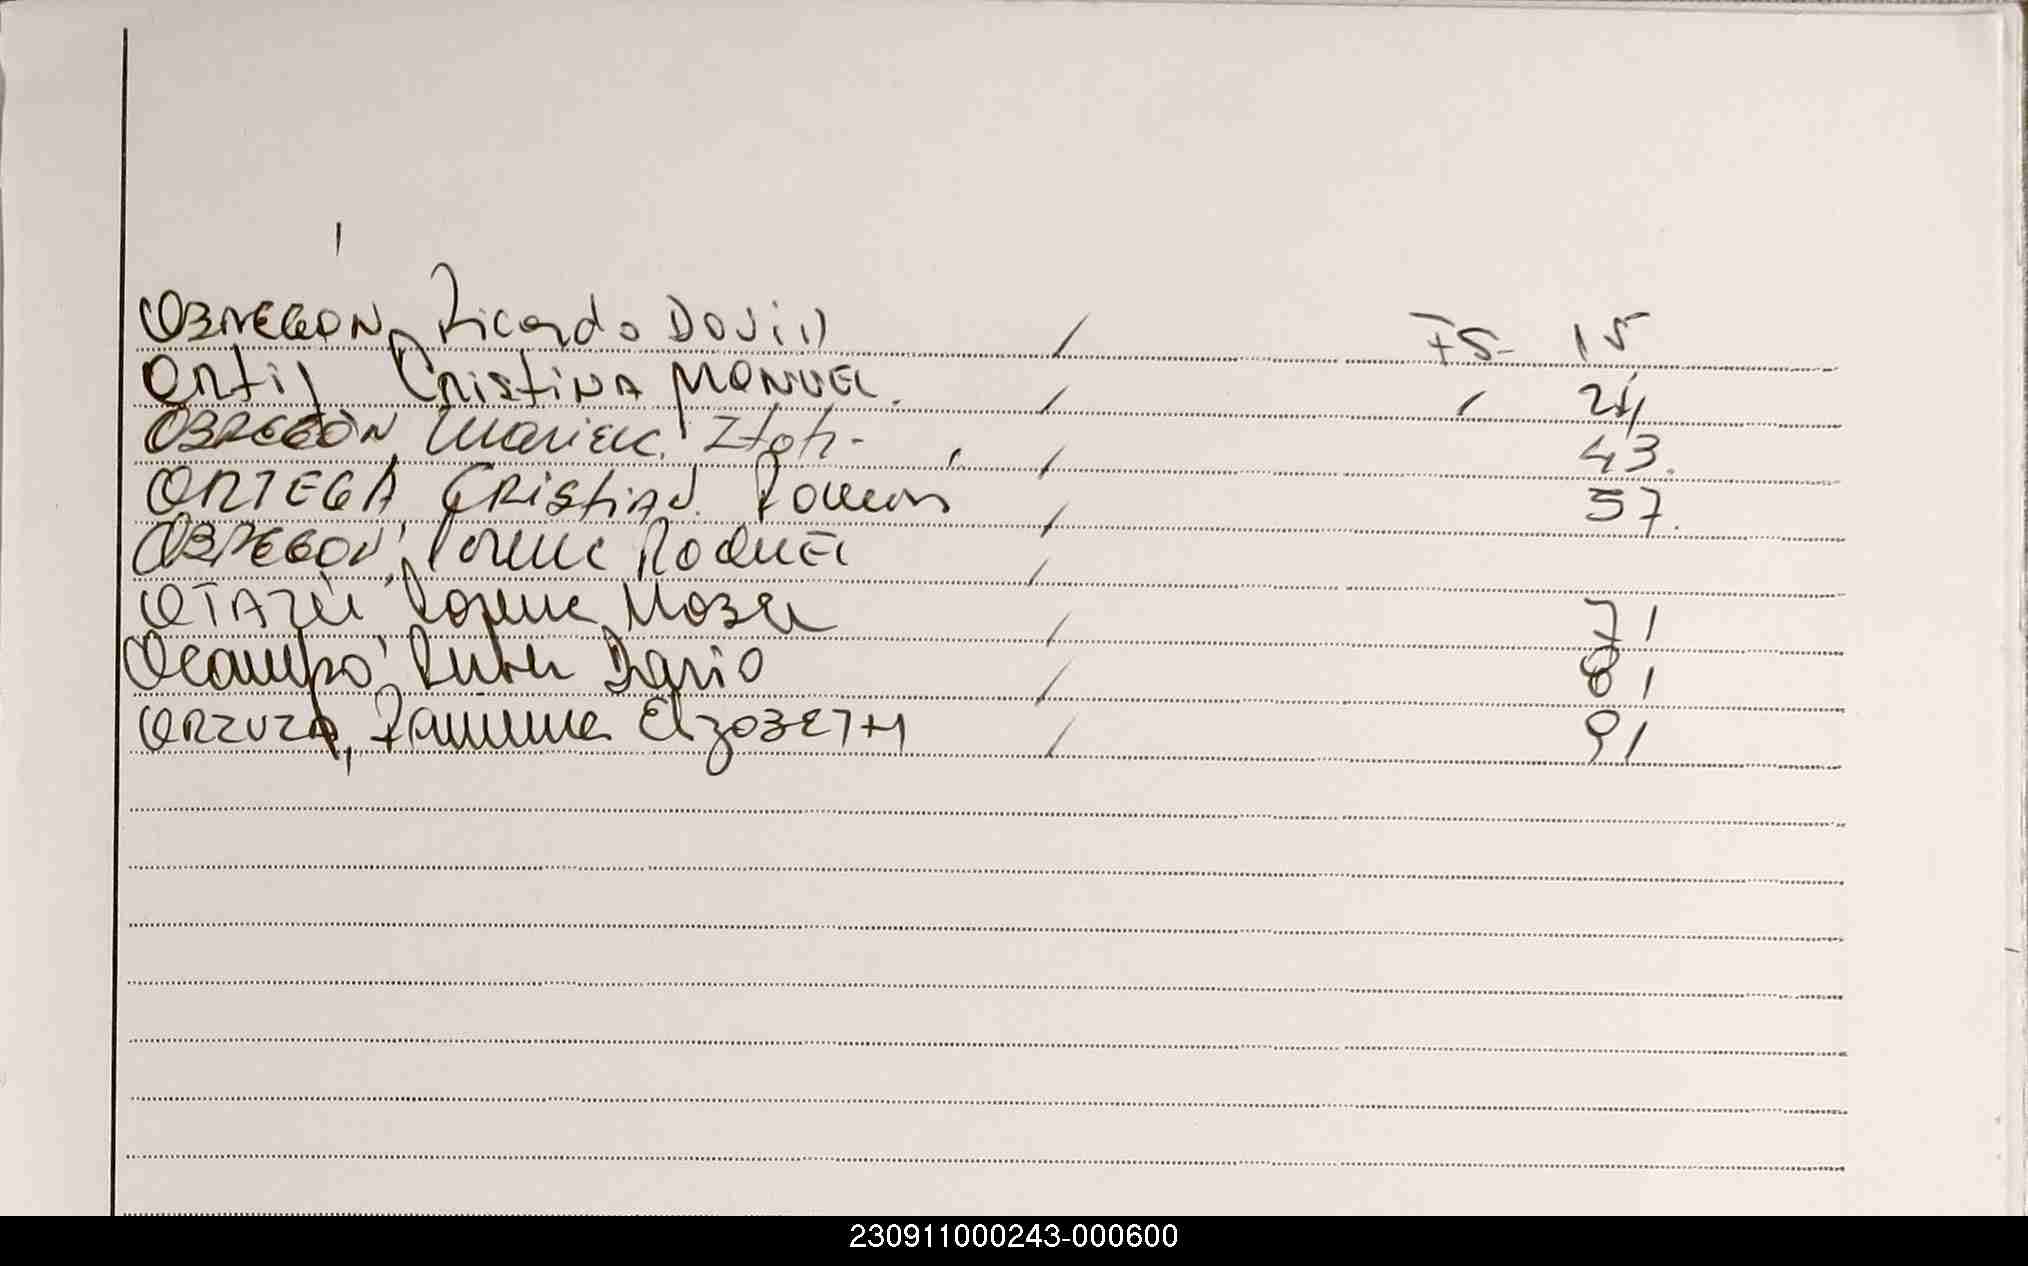 OBREGON, Ricardo David / FS- 15
Ortiz Cristina MANUEL. / 24
OBREGON Mariela Itati - /  43.
ORTEGA CRistiAN Ramon / 57.
OBREGON, Lorena RAQUEL /
OTAZU Lorena Mabel / 71
Ocampo Ruben Dario / 81
ORZUZA, Elizabeth / 91
230911000243-000600